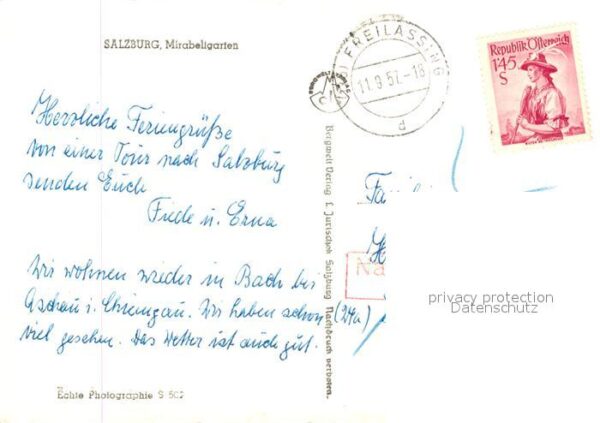 SALZBURG, Mirabellgarten
FREILASSING
11.9.57.-18
d
Republik Österreich
1·45
S
Herzliche Feriengrüße
von einer Tour nach Salzburg
senden Euch
Friedl u. Erna
Wir wohnen wieder in Bach bei
Aschau i. Chiemgau. Wir haben schon
viel gesehen. Das Wetter ist auch gut.
Echte Photographie S 502
Bergwelt Verlag L. Jurischek Salzburg Nachdruck verboten.
Fa
Na
(24a)
privacy protection
Datenschutz